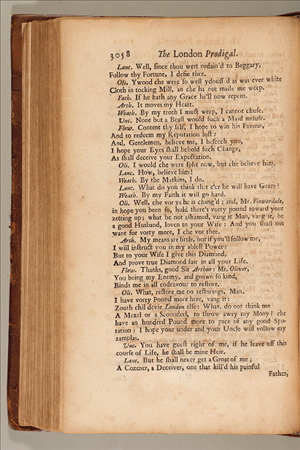 3058 The London Prodigal.
Lanc. Well, since thou wert ordain'd to Beggary,
Follow thy Fortune, I defie thee.
Oli. Ywood che were so well ydoussd as was ever white
Cloth in tocking Mill, an che ha not made me weep.
Fath. If he hath any Grace he'll now repent.
Arth. It moves my Heart.
Weath. By my troth I must weep, I cannot chuse.
Unc. None but a Beast would such a Maid misuse.
Flow. Content thy self, I hope to win his Favour,
And to redeem my Reputation lost:
And, Gentlemen, believe me, I beseech you,
I hope your Eyes shall behold such Change,
As shall deceive your Expectation.
Oli. I would che were split now, but che believe him.
Lanc. How, believe him!
Weath. By the Matkins, I do.
Lanc. What do you think that e'er he will have Grace?
Weath. By my Faith it will go hard.
Oli. Well, che vor ye he is chang'd; and, Mr. Flowerdale,
in hope you been so, hold there's vorty pound toward your
zetting up; what be not ashamed, vang it Man, vang it, be
a good Husband, loven to your Wife: And you shall not
want for vorty more, I che vor thee.
Arth. My means are little, but if you'll follow me,
I will instruct you in my ablest Power:
But to your Wife I give this Diamond,
And prove true Diamond fair in all your Life.
Flow. Thanks, good Sir Arthur: Mr. Oliver,
You being my Enemy, and grown so kind,
Binds me in all endeavour to restore.
Oli. What, restore me no restorings, Man,
I have vorty Pound more here, vang it:
Zouth chil devie London else: What, do not think me
A Mezel or a Scoundrel, to throw away my Mony? che
have an hundred Pound more to pace of any good Spo-
tation: I hope your under and your Uncle will vollow my
zamples.
Unc. You have guest right of me, if he leave off this
course of Life, he shall be mine Heir.
Lanc. But he shall never get a Groat of me;
A Cozener, a Deceiver, one that kill'd his painful
Father,